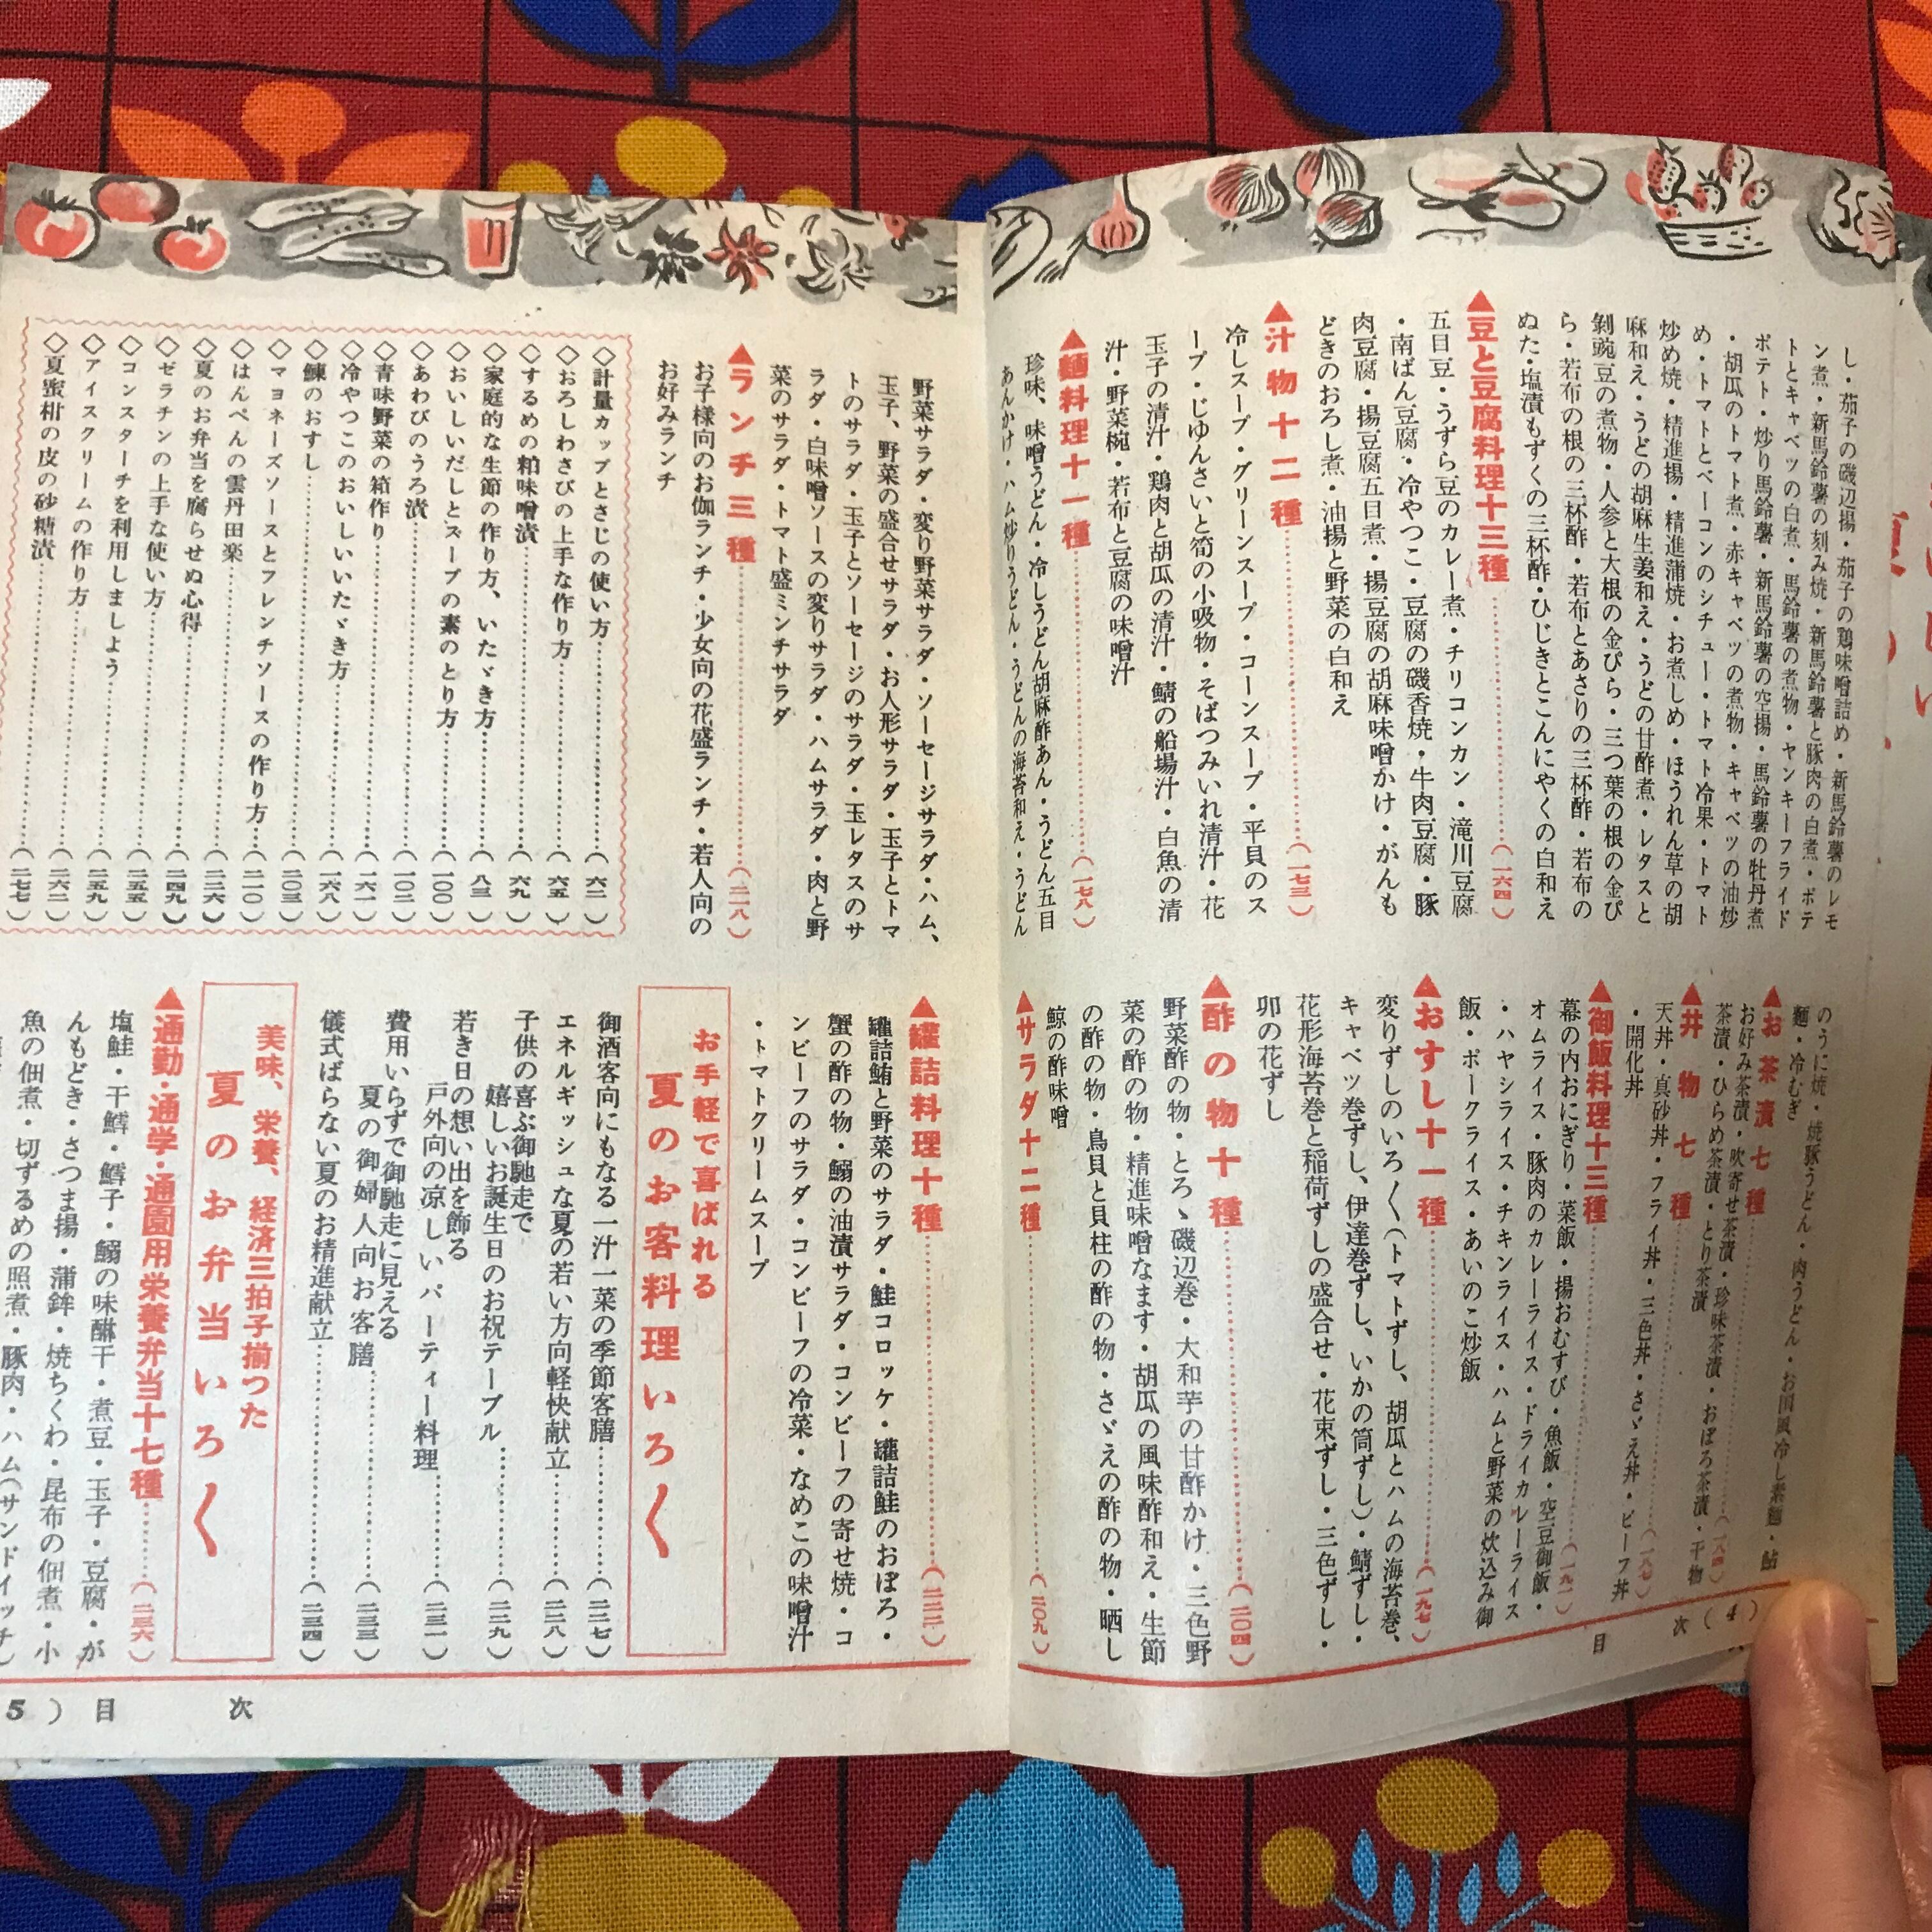 し・茄子の磯辺揚・茄子の鶏味噌詰め・新馬鈴薯のレモ
ン煮・新馬鈴薯の刻み焼・新馬鈴薯と豚肉の白煮・ポテ
トとキャベツの白煮・馬鈴薯の煮物・ヤンキーフライド
ポテト・炒り馬鈴薯・新馬鈴薯の空揚・馬鈴薯の牡丹煮
・胡瓜のトマト煮・赤キャベツの煮物・キャベツの油炒
め・トマトとベーコンのシチュー・トマト冷果・トマト
炒め焼・精進揚・精進蒲焼・お煮しめ・ほうれん草の胡
麻和え・うどの胡麻生姜和え・うどの甘酢煮・レタスと
剝豌豆の煮物・人参と大根の金ぴら・三つ葉の根の金ぴ
ら・若布の根の三杯酢・若布とあさりの三杯酢・若布の
ぬた・塩漬もずくの三杯酢・ひじきとこんにやくの白和え
▲豆と豆腐料理十三種……(一六四)
五目豆・うずら豆のカレー煮・チリコンカン・滝川豆腐
・南ばん豆腐・冷やつこ・豆腐の磯香焼・牛肉豆腐・豚
肉豆腐・揚豆腐五目煮・揚豆腐の胡麻味噌かけ・がんも
どきのおろし煮・油揚と野菜の白和え
▲汁物十二種……(一七三)
冷しスープ・グリーンスープ・コーンスープ・平貝のス
ープ・じゆんさいと筍の小吸物・そばつみいれ清汁・花
玉子の清汁・鶏肉と胡瓜の清汁・鯖の船場汁・白魚の清
汁・野菜椀・若布と豆腐の味噌汁
▲麺料理十一種……(一七八)
珍味、味噌うどん・冷しうどん胡麻酢あん・うどん五目
あんかけ・ハム炒りうどん・うどんの海苔和え・うどん
のうに焼・焼豚うどん・肉うどん・お国風冷し素麺・鮎
麺・冷むぎ
▲お茶漬七種……(一八四)
お好み茶漬・吹寄せ茶漬・珍味茶漬・おぼろ茶漬・干物
茶漬・ひらめ茶漬・とり茶漬
▲丼物七種……(一八七)
天丼・真砂丼・フライ丼・三色丼・さゞえ丼・ビーフ丼
・開化丼
▲御飯料理十三種……(一九一)
幕の内おにぎり・菜飯・揚おむすび・魚飯・空豆御飯・
オムライス・豚肉のカレーライス・ドライカレーライス
・ハヤシライス・チキンライス・ハムと野菜の炊込み御
飯・ポークライス・あいのこ炒飯
▲おすし十一種……(一九七)
変りずしのいろ〱(トマトずし、胡瓜とハムの海苔巻、
キャベツ巻ずし、伊達巻ずし、いかの筒ずし)・鯖ずし・
花形海苔巻と稲荷ずしの盛合せ・花束ずし・三色ずし・
卯の花ずし
▲酢の物十種……(二〇四)
野菜酢の物・とろゝ磯辺巻・大和芋の甘酢かけ・三色野
菜の酢の物・精進味噌なます・胡瓜の風味酢和え・生節
の酢の物・鳥貝と貝柱の酢の物・さゞえの酢の物・晒し
鯨の酢味噌
▲サラダ十二種……(二〇九)
次(4)
目
野菜サラダ・変り野菜サラダ・ソーセージサラダ・ハム、
玉子、野菜の盛合せサラダ・お人形サラダ・玉子とトマ
トのサラダ・玉子とソーセージのサラダ・玉レタスのサ
ラダ・白味噌ソースの変りサラダ・ハムサラダ・肉と野
菜のサラダ・トマト盛ミンチサラダ
▲ランチ三種……(二一八)
お子様向のお伽ランチ・少女向の花盛ランチ・若人向の
お好みランチ
◇計量カップとさじの使い方……(六二)
◇おろしわさびの上手な作り方……(六五)
◇するめの粕味噌漬……(六九)
◇家庭的な生節の作り方、いたゞき方……(八三)
◇おいしいだしとスープの素のとり方……(一〇〇)
◇あわびのうろ漬……(一〇二)
◇青味野菜の箱作り……(一六一)
◇冷やつこのおいしいいたゞき方……(一六八)
◇鰊のおすし……(二〇三)
◇マヨネーズソースとフレンチソースの作り方……(二一〇)
◇はんぺんの雲丹田楽……(二二六)
◇夏のお弁当を腐らせぬ心得……(二四九)
◇ゼラチンの上手な使い方……(二五五)
◇コンスターチを利用しましよう……(二五九)
◇アイスクリームの作り方……(二六二)
◇夏蜜柑の皮の砂糖漬……(二七七)
▲罐詰料理十種……(二二二)
罐詰鮪と野菜のサラダ・鮭コロッケ・罐詰鮭のおぼろ・
蟹の酢の物・鰯の油漬サラダ・コンビーフの寄せ焼・コ
ンビーフのサラダ・コンビーフの冷菜・なめこの味噌汁
・トマトクリームスープ
お手軽で喜ばれる
夏のお客料理いろ〱
御酒客向にもなる一汁一菜の季節客膳……(二二七)
エネルギッシュな夏の若い方向軽快献立……(二二八)
子供の喜ぶ御馳走で
嬉しいお誕生日のお祝テーブル……(二二九)
若き日の想い出を飾る
戸外向の凉しいパーティー料理……(二三一)
費用いらずで御馳走に見える
夏の御婦人向お客膳……(二三三)
儀式ばらない夏のお精進献立……(二三四)
美味、栄養、経済三拍子揃つた
夏のお弁当いろ〱
▲通勤・通学・通園用栄養弁当十七種……(二三六)
塩鮭・干鱈・鱈子・鰯の味醂干・煮豆・玉子・豆腐・が
んもどき・さつま揚・蒲鉾・焼ちくわ・昆布の佃煮・小
魚の佃煮・切ずるめの照煮・豚肉・ハム(サンドイッチ)
次
目
5)